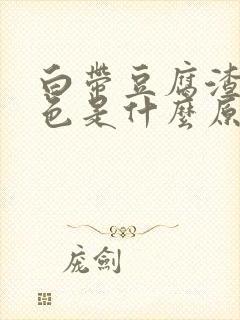 白带豆腐渣
色是什麼原
庞劍